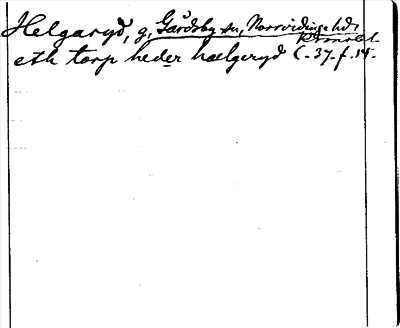 Helgaryd, g, Gårdsby sn, Norrvidinge hd,
eth torp heder hælgeryd C. 37. f. 14.